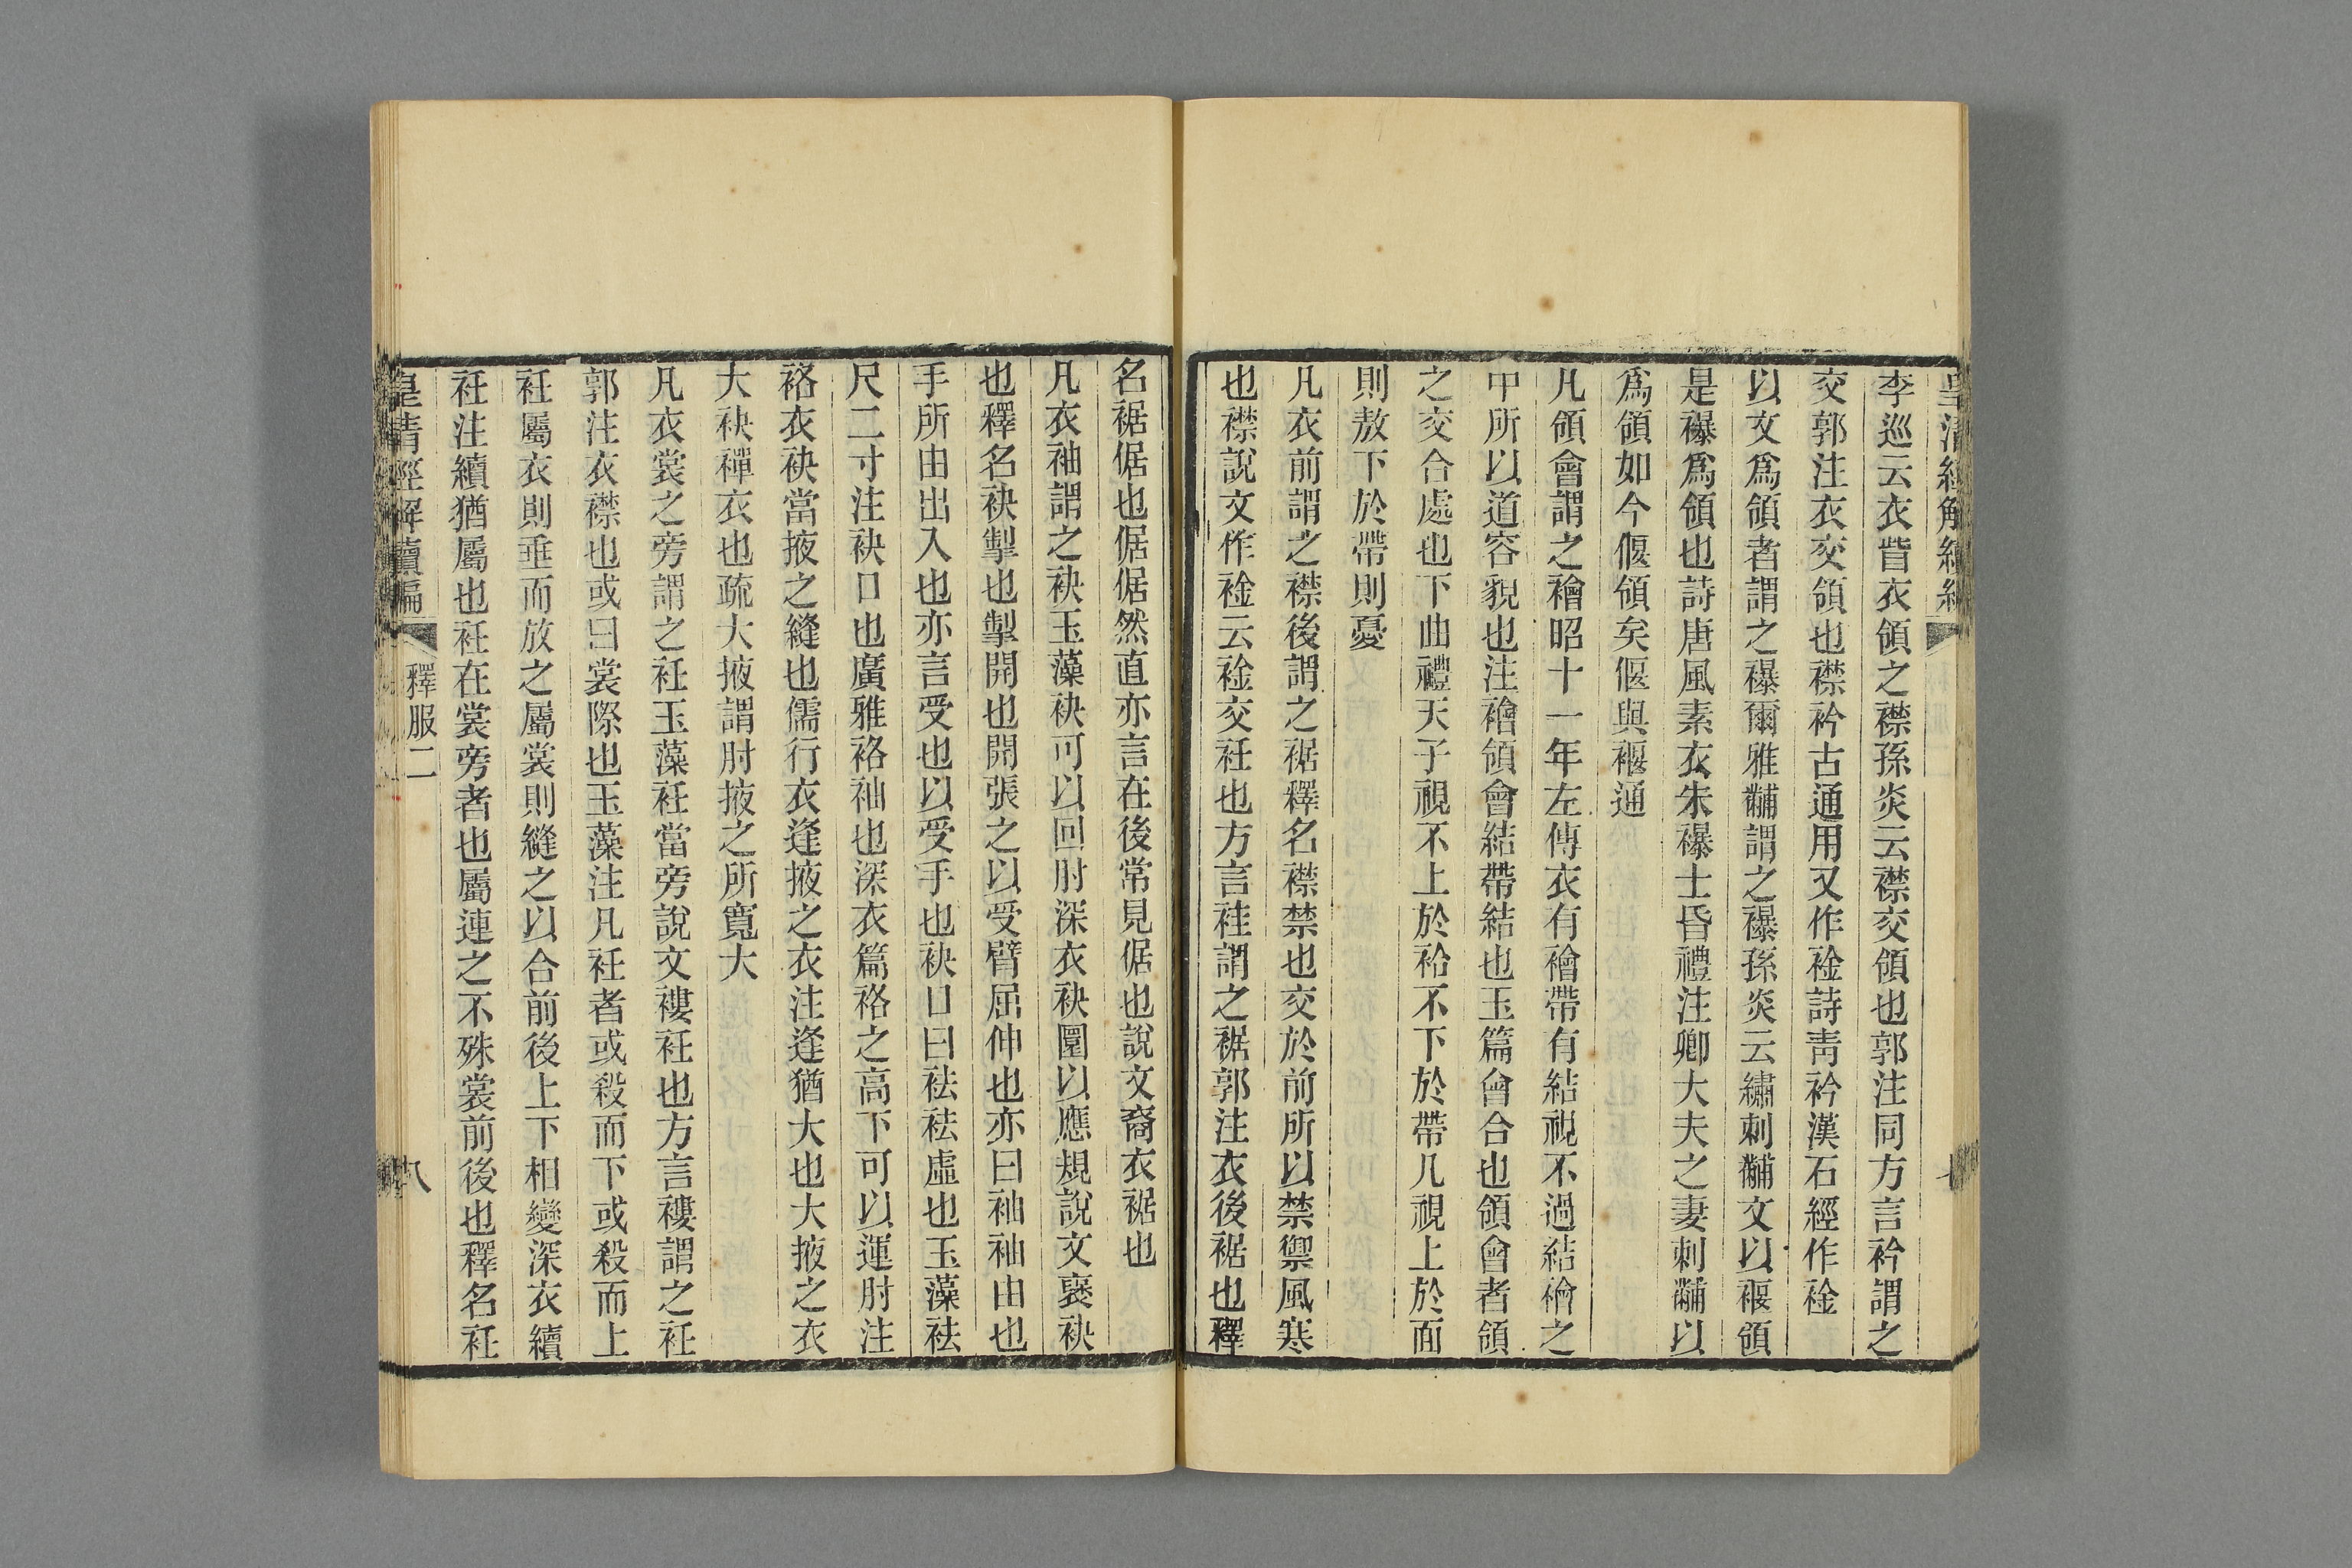 李巡云衣眥衣領之襟孫炎云襟交領也郭注同方言衿謂之
交郭注衣交領也襟衿古通用又作裣詩靑衿漢石經作裣
以文爲領者謂之襮爾雅黼謂之襮孫炎云繡刺黼文以褗領
是襮爲領也詩唐風素衣朱襮士昏禮注卿大夫之妻刺黼以
爲領如今偃領矣偃與褗通
凡領會謂之襘昭十一年左傳衣有襘帶有結視不過結襘之
中所以道容貌也注襘領會結帶結也玉篇會合也領會者領
之交合處也下曲禮天子視不上於袷不下於帶凡視上於面
則敖下於帶則憂
凡衣前謂之襟後謂之裾釋名襟禁也交於前所以禁禦風寒
也襟說文作裣云裣交衽也方言袿謂之裾郭注衣後裾也釋
名裾倨也倨倨然直亦言在後常見倨也說文裔衣裾也
凡衣袖謂之袂玉藻袂可以回肘深衣袂圜以應規說文褎袂
也釋名袂掣也掣開也開張之以受臂屈伸也亦曰袖袖由也
手所由出入也亦言受也以受手也袂口曰袪袪虛也玉藻袪
尺二寸注袂口也廣雅袼袖也深衣篇袼之高下可以運肘注
袼衣袂當掖之縫也儒行衣逢掖之衣注逢猶大也大掖之衣
大袂襌衣也疏大掖謂肘掖之所寬大
凡衣裳之旁謂之衽玉藻衽當旁說文褸衽也方言褸謂之衽
郭注衣襟也或曰裳際也玉藻注凡衽者或殺而下或殺而上
衽屬衣則垂而放之屬裳則縫之以合前後上下相變深衣續
衽注續猶屬也衽在裳旁者也屬連之不殊裳前後也釋名衽
皇清經解續編
釋服二
八